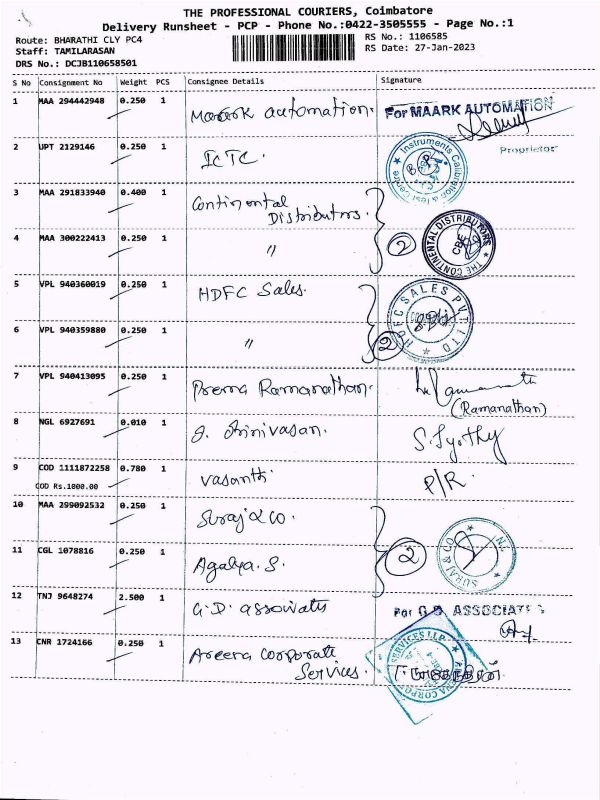 THE PROFESSIONAL COURIERS, Coimbatore
Delivery Runsheet - PCP - Phone No.:0422-3505555 - Page No.:1
Route: BHARATHI CLY PC4
Staff: TAMILARASAN
DRS No.: DCJB110658501
RS No.: 1106585
RS Date: 27-Jan-2023
S No Consignment No Weight PCS Consignee Details Signature
1 MAA 294442948 0.250 1 Maark automation. For MAARK AUTOMATION
Proprietor
2 UPT 2129146 0.250 1 ICTC. Instruments Calibration & Test Centre
3 MAA 291833940 0.400 1 Continental
Distributors.
4 MAA 300222413 0.250 1 " 2 THE CONTINENTAL DISTRIBUTORS CBE
5 VPL 940360019 0.250 1 HDFC Sales.
6 VPL 940359880 0.250 1 " 2 HDFC SALES PVT LTD
7 VPL 940413095 0.250 1 Prema Ramanathan.
(Ramanathan)
8 NGL 6927691 0.010 1 J. Srinivasan. S. Jyothy
9 COD 1111872258 0.780 1 vasanthi P/R
COD Rs.1000.00
10 MAA 299092532 0.250 1 Suraj & co.
11 CGL 1078816 0.250 1 Agalya. S. 2 SURAJ & CO
12 TNJ 9648274 2.500 1 G.D. associates For G.D. ASSOCIATES
13 CNR 1724166 0.250 1 Areena Corporate
Services.